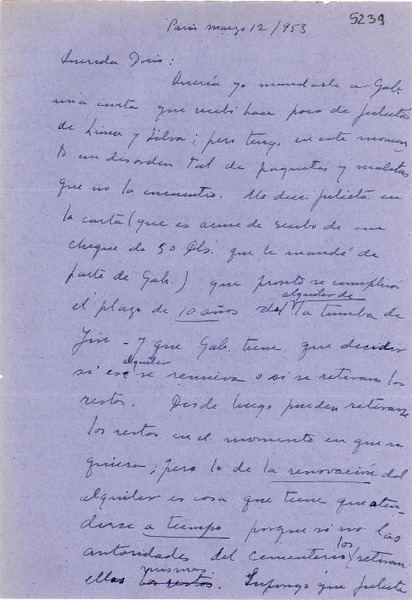 5239
París marzo 12/953
Querida Doris:
Quería yo mandarle a Gab.
una carta que recibí hace poco de Julieta
de Lima y Silva; pero tengo en este momen
to un desorden tal de paquetes y maletas
que no la encuentro. Me dice Julieta en
la carta (que es acuse de recibo de un
cheque de 50 Dls. que le mandé de
parte de Gab.) que pronto se cumplirá
el plazo de 10 años del alquiler de la tumba de
Yin - y que Gab. tiene que decidir
si ese alquiler se renueva o si se retiran los
restos. Desde luego pueden retirarse
los restos en el momento en que se
quiera; pero lo de la renovación del
alquiler es cosa que tiene que aten-
derse a tiempo porque si no las
autoridades del cementerio los retiran
ellas mismas. Supongo que Julieta